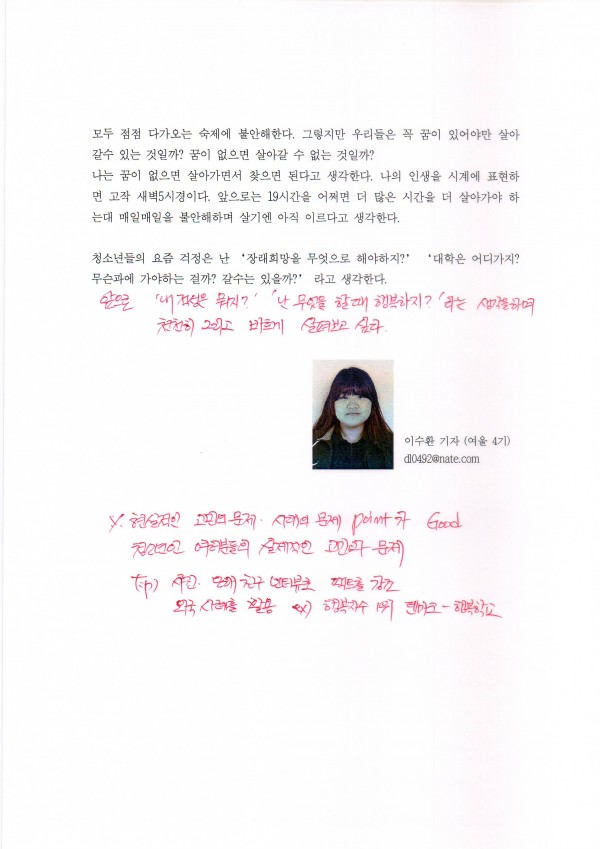 모두 점점 다가오는 숙제에 불안해한다. 그렇지만 우리들은 꼭 꿈이 있어야만 살아
갈수 있는 것일까? 꿈이 없으면 살아갈 수 없는 것일까?
나는 꿈이 없으면 살아가면서 찾으면 된다고 생각한다. 나의 인생을 시계에 표현하
면 고작 새벽5시경이다. 앞으로는 19시간을 어쩌면 더 많은 시간을 더 살아가야 하
는대 매일매일을 불안해하며 살기엔 아직 이르다고 생각한다.
청소년들의 요즘 걱정은 난 ‘장래희망을 무엇으로 해야하지?’ ‘대학은 어디가지?
무슨과에 가야하는 걸까? 갈수는 있을까?’ 라고 생각한다.
앞으로 '내 강점은 뭐지?' '난 무엇을 할때 행복하지?' 라는 생각을하며
천천히 그리고 바르게 살펴보고 싶다.
이수환 기자 (여울 4기)
dl0492@nate.com
현실적인 고민의 문제. 시대의 문제 point가 Good
청소년인 여러분들의 실제적인 고민과 문제
Tip) 사진. 또래 친구 인터뷰로 팩트를 강조
외국 사례를 활용 ex) 행복지수 1위 덴마크 - 행복학교